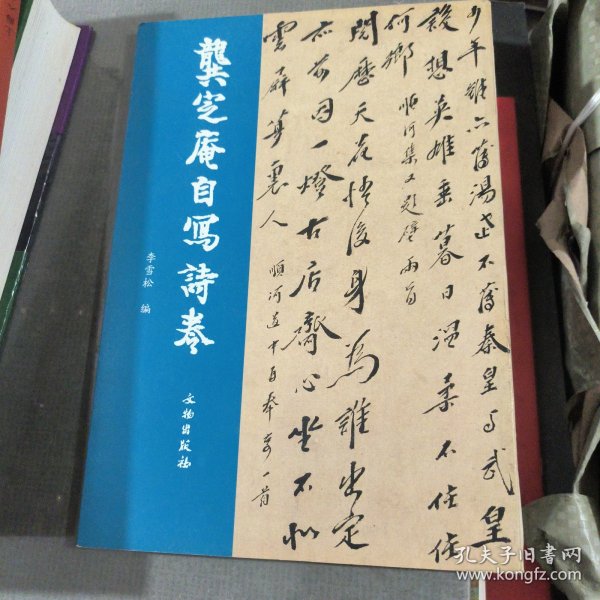 龔定庵自寫詩卷
李雪松 编
文物出版社
少年雖亦薄湯武不薄秦皇与武皇
設想英雄垂暮日温柔不住住
何鄉 順河集又題壁兩首
閱歷天花悟後身為誰出定
亦前因一燈古店齋心坐不似
雲屏夢裏人 順河道中再奉寄一首
孔夫子旧书网
www.kongfz.com